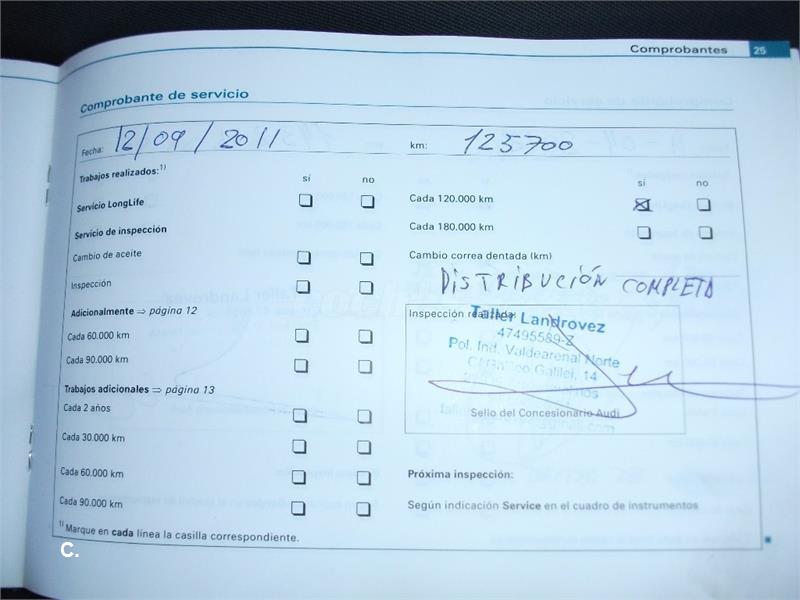 Comprobantes 25
Comprobante de servicio
Fecha: 12/09/2011
km: 125700
Trabajos realizados:1)
sí no
Servicio LongLife
Servicio de inspección
Cambio de aceite
Inspección
Adicionalmente ⇒ página 12
Cada 60.000 km
Cada 90.000 km
Trabajos adicionales ⇒ página 13
Cada 2 años
Cada 30.000 km
Cada 60.000 km
Cada 90.000 km
1) Marque en cada línea la casilla correspondiente.
sí no
Cada 120.000 km
Cada 180.000 km
Cambio correa dentada (km)
DISTRIBUCIÓN COMPLETA
Inspección realizada:
Taller Landrovez
47495589-Z
Pol. Ind. Valdearenal Norte
C/ Galileo Galilei, 14
Sello del Concesionario Audi
Próxima inspección:
Según indicación Service en el cuadro de instrumentos
C.